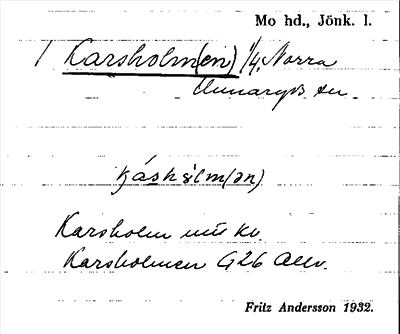 Mo hd., Jönk. l.
1 Karsholm(en) 1/4, Norra
Unnaryds sn.
káshɘlm(ən)
Karsholm mtl kv.
Karsholmen G26 Allv.
Fritz Andersson 1932.